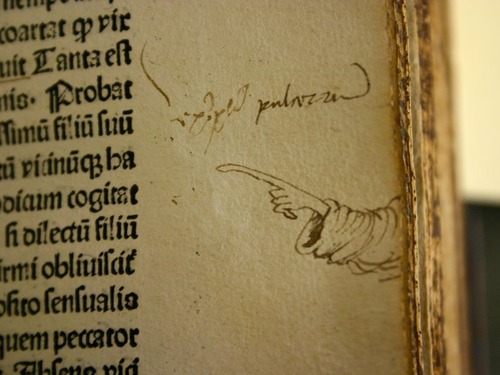 coartat ꝙ vix
uit Tanta est
nis. Probat
ssimū filiū suū
tū vicinūqꝫ ha
odicum cogitat
si dilectū filiū
irmi obliuiscit᷑
osito sensualis
quem peccator
Absens vici
pulcrum